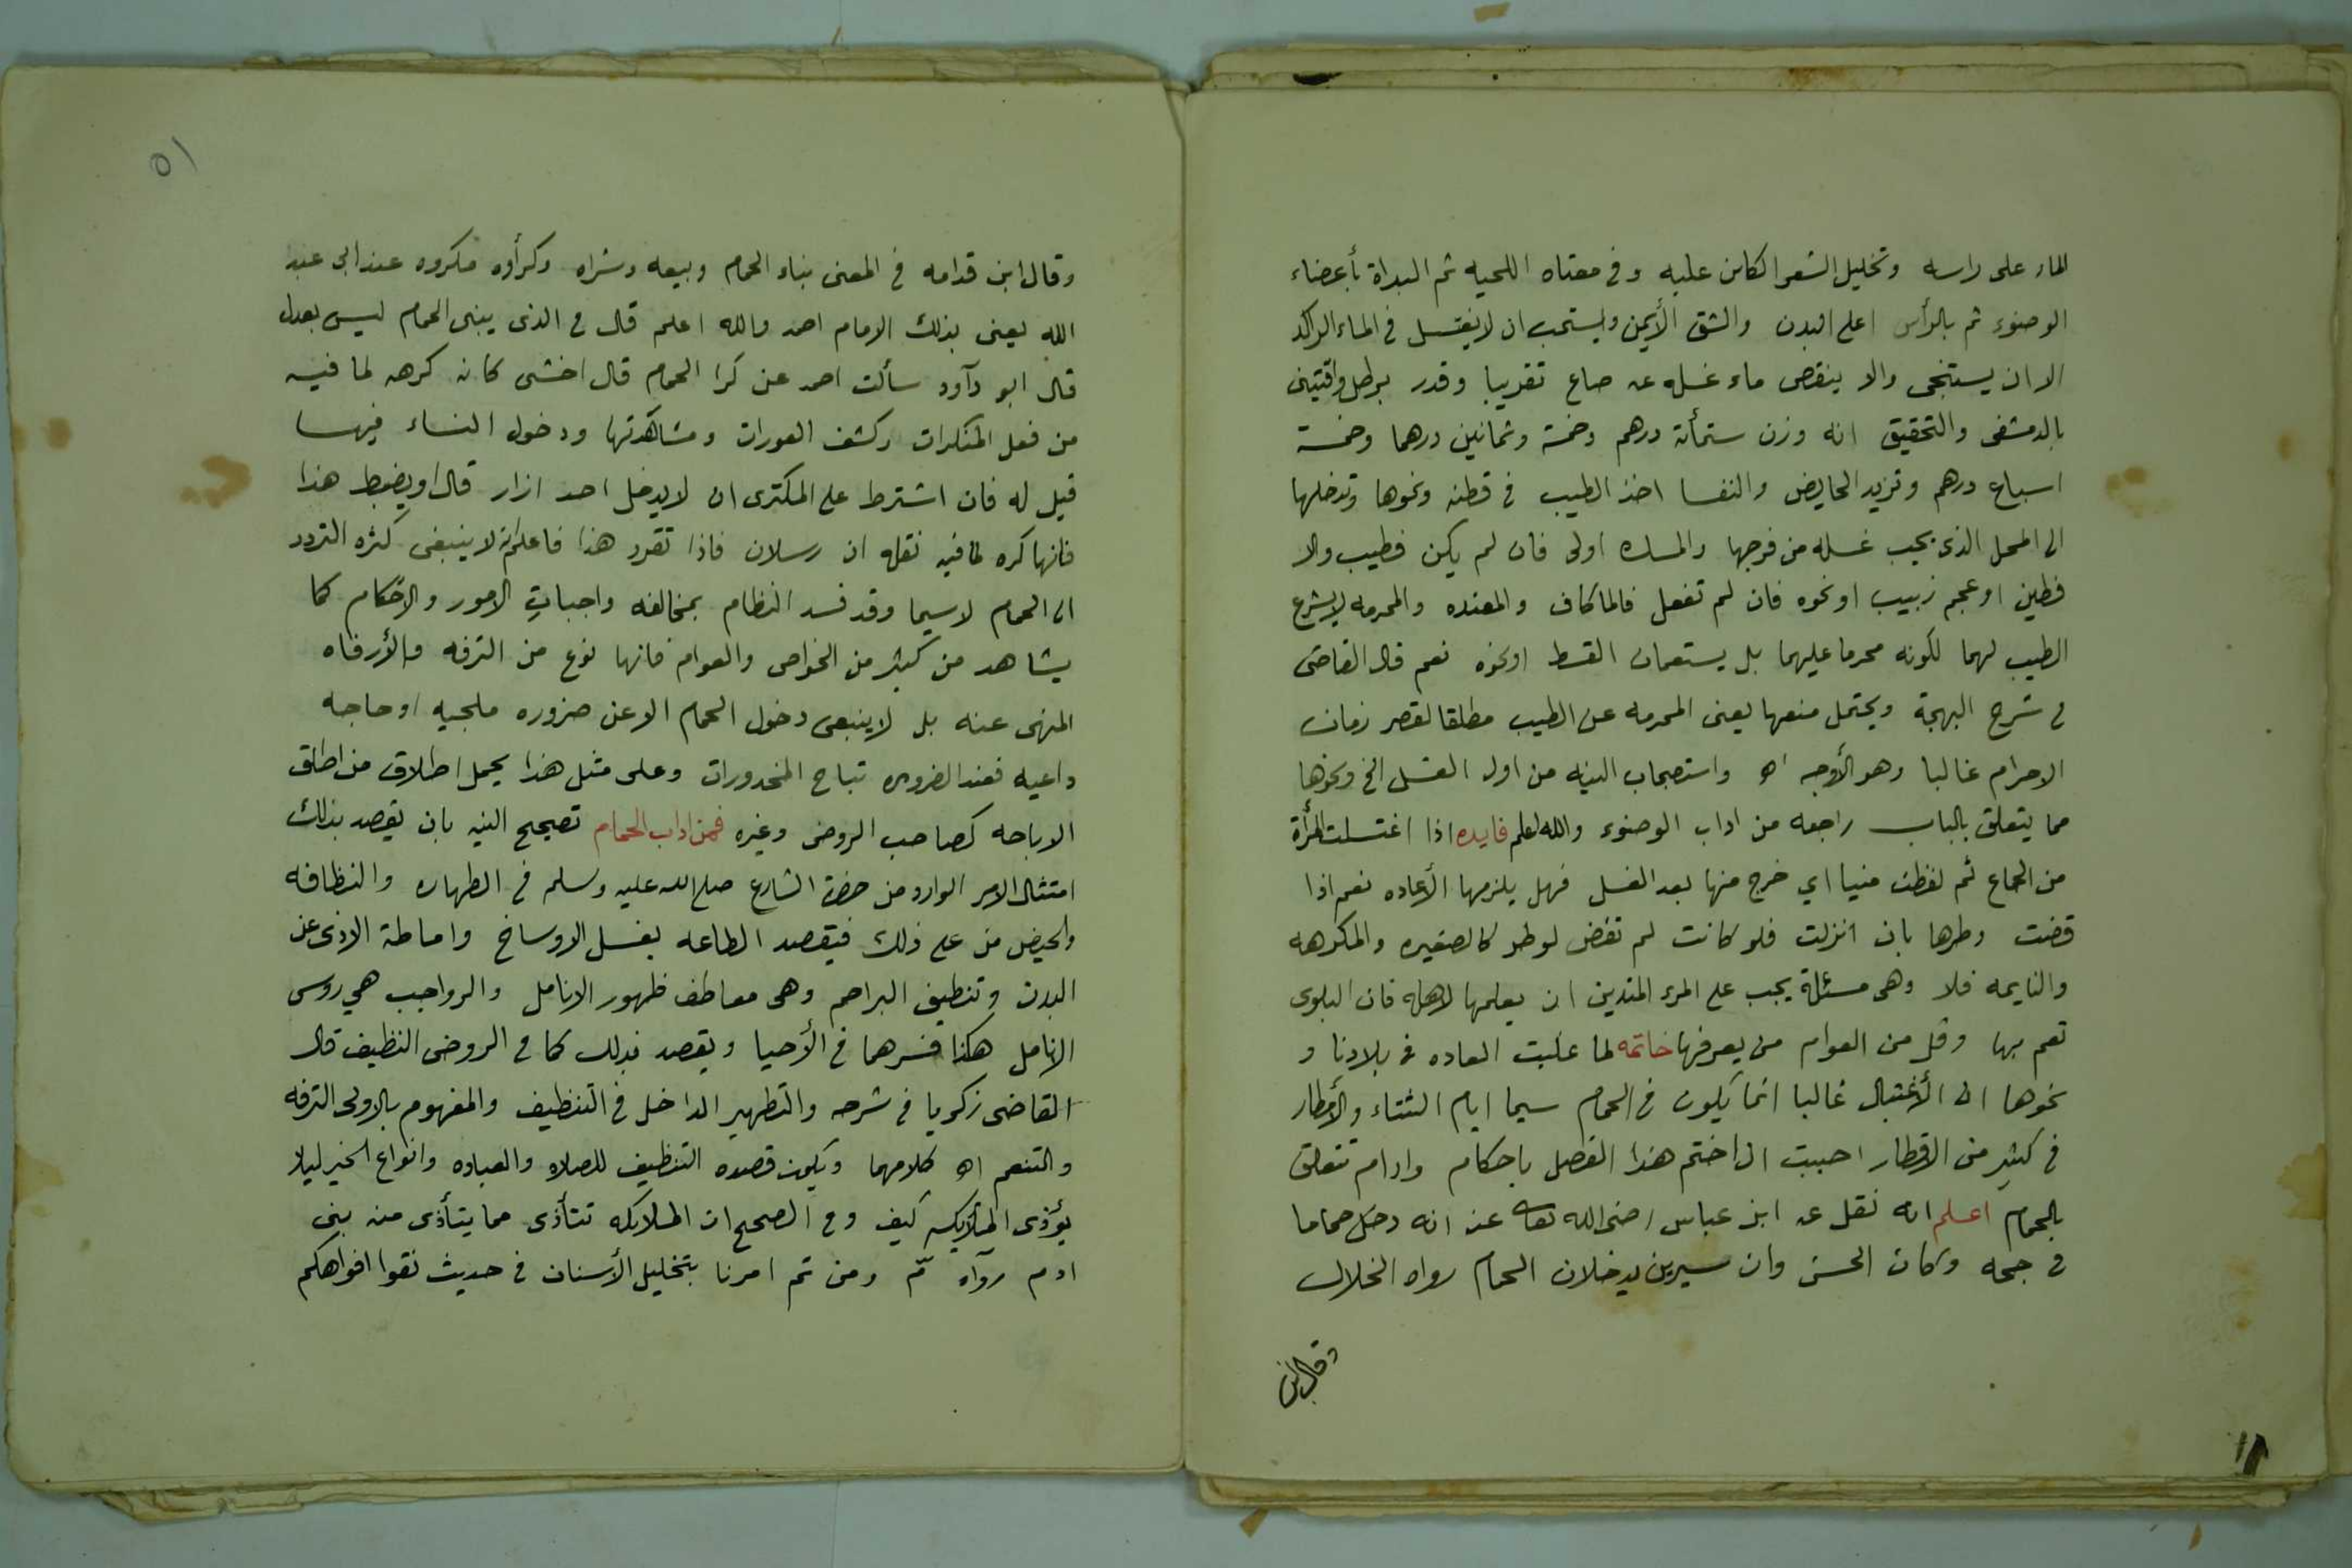 الماء على راسه وتخليل الشعر الكاين عليه وفي معناه اللحيه ثم البداة بأعضاء
الوضوء ثم بالرأس اعلى البدن والشق الأيمن ويستحب ان لا يغتسل في الماء الراكد
الا ان يستنجى والا ينقص ماء غسله عن صاع تقريبا وقدر برطل واقتين
بالدمشقى والتحقيق انه وزن ستمأئة درهم وخمسة وثمانين درهما وخمسة
اسباع درهم وتزيد الحايض والنفسا اخذ الطيب في قطنه ونحوها وتدخلها
الى المحل الذى يجب غسله من فرجها والمسك اولى فان لم يكن فطيب والا
فطين او عجم زبيب او نحوه فان لم تفعل فالما كاف والمعتده والمحرمه لا يشرع
الطيب لهما لكونه محرما عليهما بل يستعملان القسط او نحوه نعم قال القاضى
في شرح البهجة ويحتمل منعها يعنى المحرمه عن الطيب مطلقا لقصر زمان
الاحرام غالبا وهو الأوجه اه واستصحاب النيه من اول الغسل الخ ونحوها
مما يتعلق بالباب راجعه من اداب الوضوء والله اعلم فايده اذا اغتسلت المرأة
من الجماع ثم لفظت منيا اي خرج منها بعد الغسل فهل يلزمها الأعاده نعم اذا
قضت وطرها بان انزلت فلو كانت لم تقض لوطر كالصغيره والمكرهه
والنايمه فلا وهى مسئلة يجب على المرء المتدين ان يعلمها لاهله فان البلوى
تعم بها وقل من العوام من يعرفها خاتمه لما غلبت العاده في بلادنا و
نحوها ان الأغتسال غالبا انما يكون في الحمام سيما ايام الشتاء والأمطار
في كثير من الاقطار احببت ان اختم هذا الفصل باحكام وادام تتعلق
بالحمام اعلم انه نقل عن ابن عباس رضى الله تعالى عنه انه دخل حماما
في جحه وكان الحسن وابن سيرين يدخلان الحمام رواه الخلال
وقال ابن
١٥
وقال ابن قدامه في المعنى بناء الحمام وبيعه وشراه وكرأوه مكروه عند ابى عبد
الله يعنى بذلك الامام احمد والله اعلم قال في الذى يبنى الحمام ليس بعدل
قال ابو دآود سألت احمد عن كرا الحمام قال اخشى كانه كرهه لما فيه
من فعل المنكرات وكشف العورات ومشاهدتها ودخول النساء فيها
قيل له فان اشترط على المكترى ان لا يدخل احد ازار قال او يضبط هذا
فانها كره لما فيه نقله ابن رسلان فاذا تقرر هذا فاعلم انه لا ينبغى كثره التردد
الى الحمام لاسيما وقد فسد النظام بمخالفه واجبات الامور والاحكام كما
يشاهد من كثير من الخواص والعوام فانها نوع من الترفه والأرفاه
المنهى عنه بل لا ينبغى دخول الحمام الا عن ضروره ملجيه او حاجه
داعيه فعند الضروره تباح المحذورات وعلى مثل هذا يحمل اطلاق من اطلق
الاباحه كصاحب الروض وغيره فمن اداب الحمام تصحيح النيه بان يقصد بذلك
امتثال الامر الوارد من حضرة الشارع صلى الله عليه وسلم في الطهاره والنظافه
والحيض من على ذلك فيقصد الطاعه بغسل الاوساخ واماطة الاذى عن
البدن وتنظيف البراجم وهى معاطف ظهور الانامل والرواجب هي روس
الانامل هكذا فسرهما في الأحيا ويقصد بذلك كما في الروض النظيف قال
القاضى زكريا في شرحه والتطهير الداخل في التنظيف والمفهوم بالاولى الترفه
والتنعم اه كلامهما ويكون قصده التنظيف للصلاه والعباده وانواع الخير ليلا
يؤذى الملايكه كيف وفي الصحيح ان الملايكه تتأذى مما يتأذى منه بنى
ادم رواه مّ ومن ثم امرنا بتخليل الأسنان في حديث نقوا افواهكم